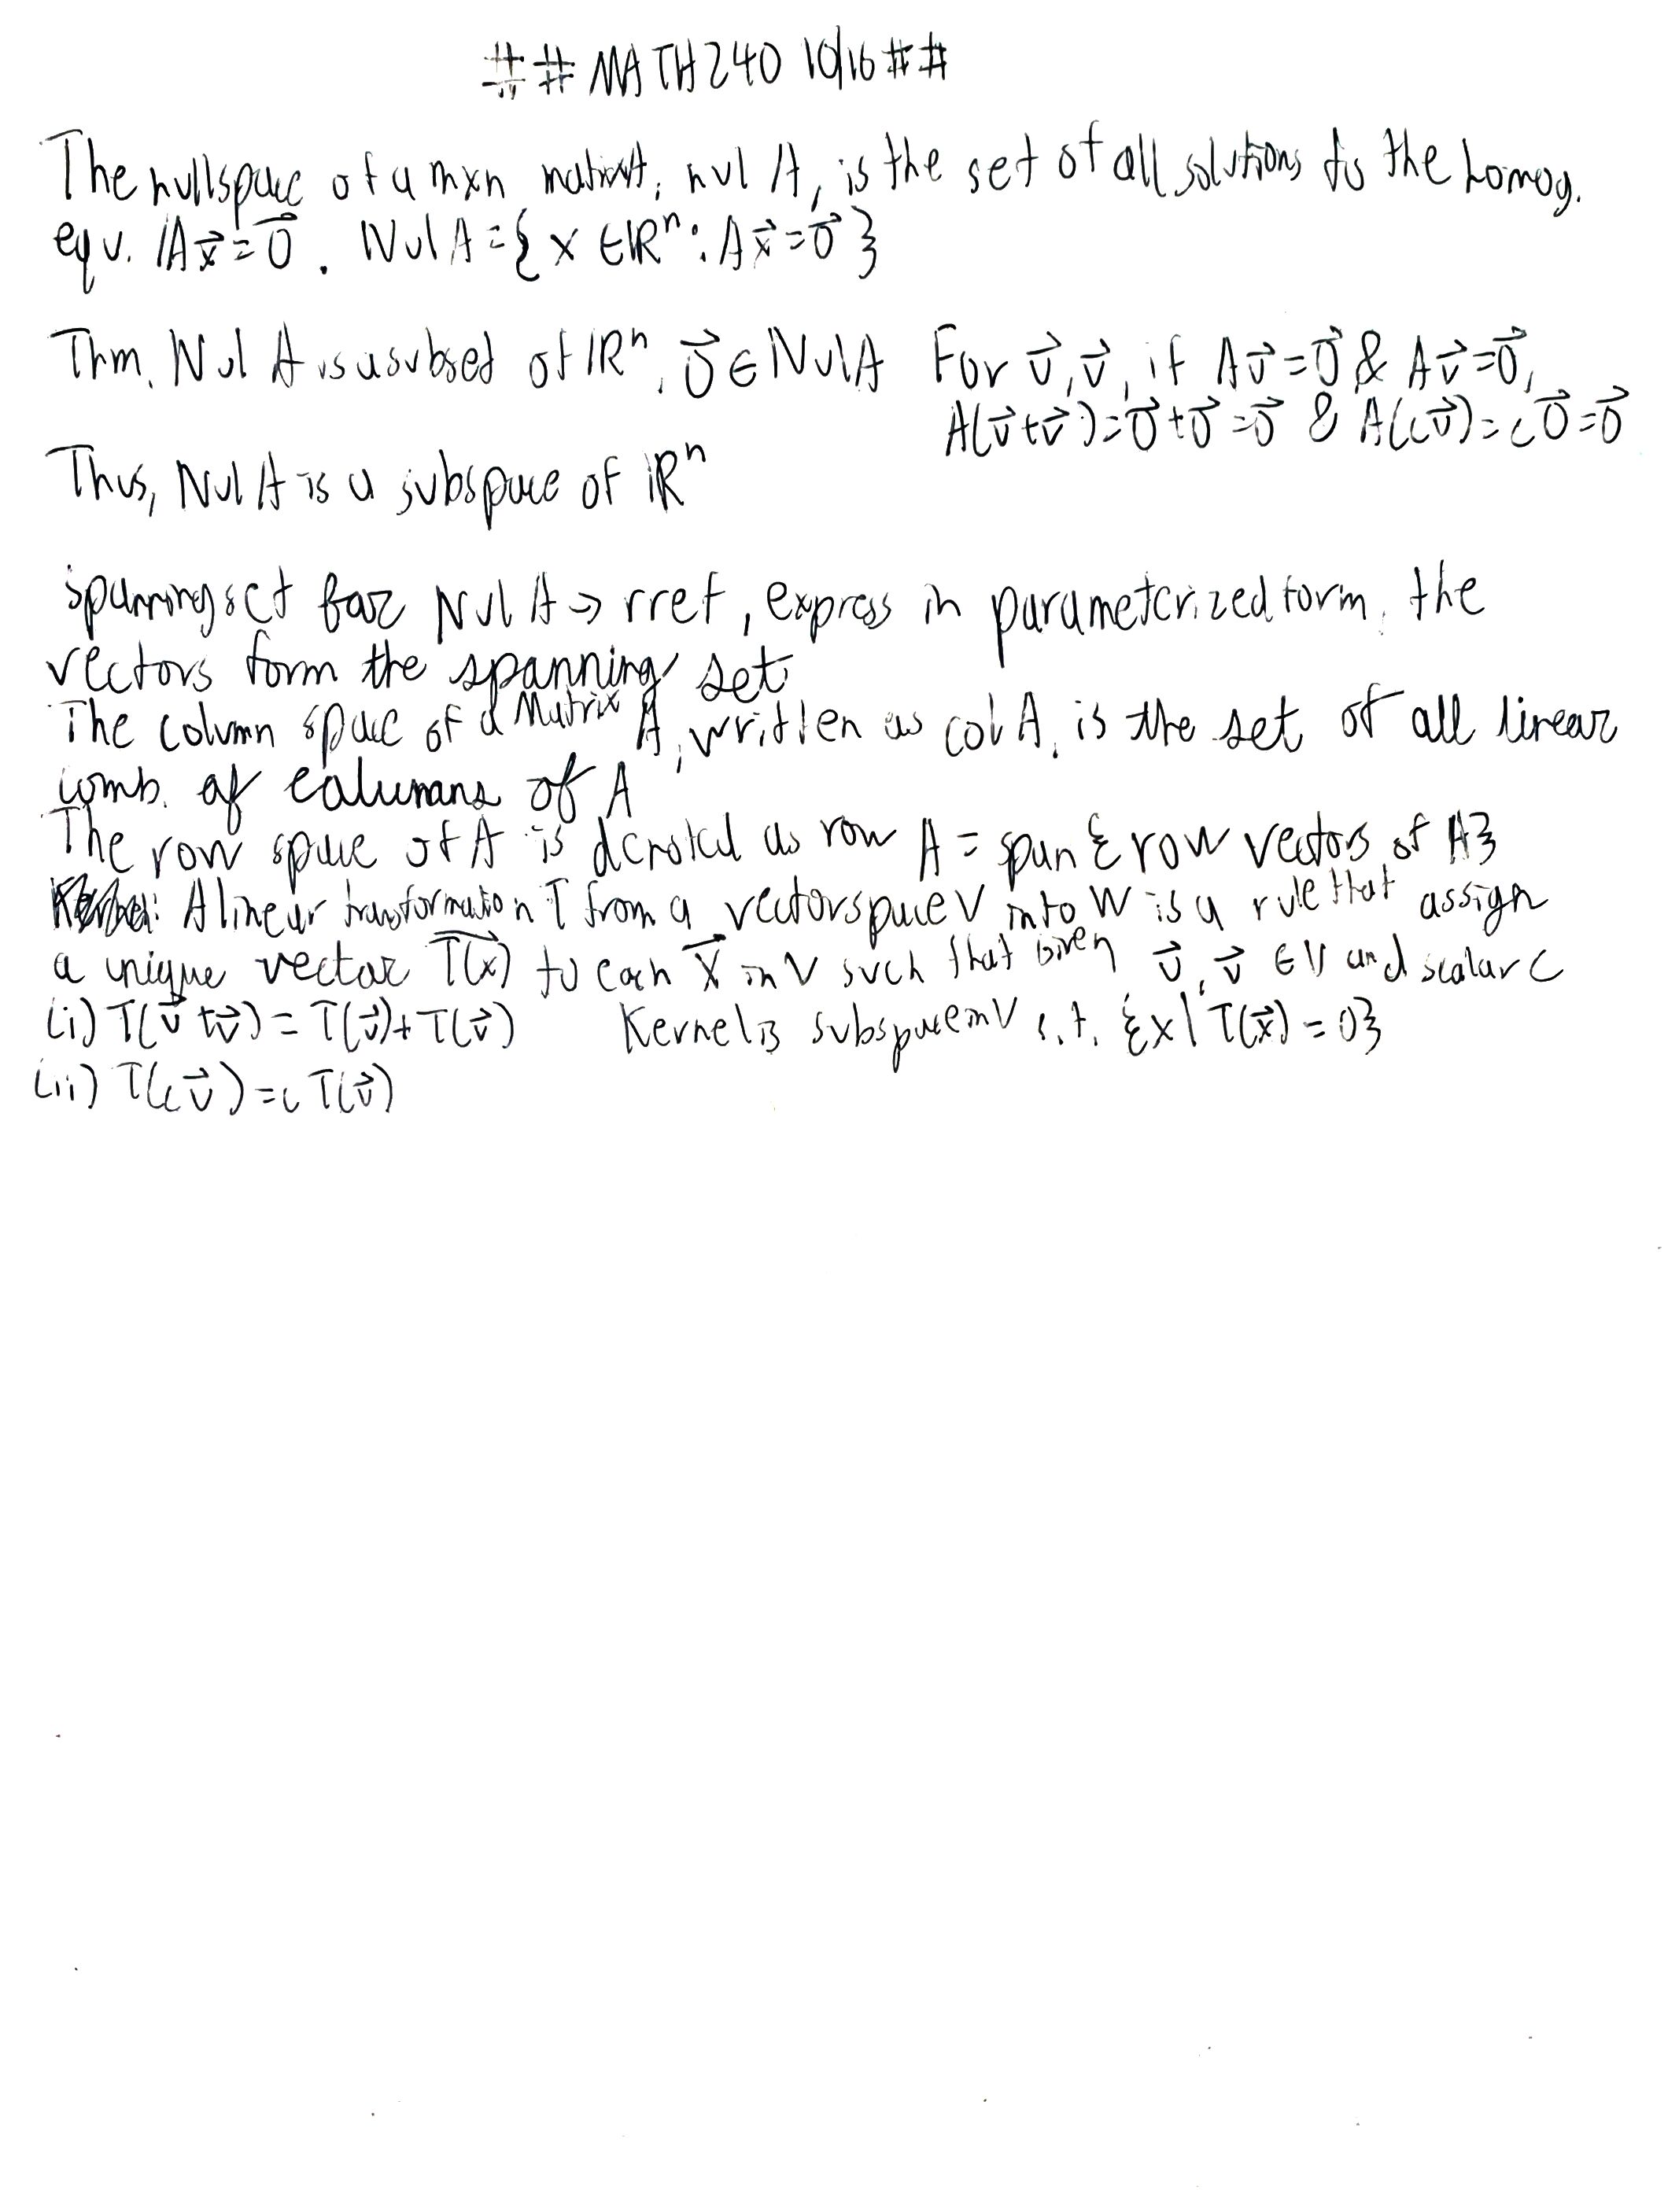 ## MATH240 10/16 ##
The nullspace of a mxn matrix A, nul A, is the set of all solutions to the homog.
eqv. Ax⃗=0⃗. Nul A={x ∈ℝⁿ: Ax⃗=0⃗}
Thm. Nul A is a subset of ℝⁿ. 0⃗∈Nul A For u⃗,v⃗, if Au⃗=0⃗ & Av⃗=0⃗,
A(u⃗+v⃗)=0⃗+0⃗=0⃗ & A(cu⃗)=c0⃗=0⃗
Thus, Nul A is a subspace of ℝⁿ
spanning set for Nul A → rref, express in parameterized form, the
vectors form the spanning set
The column space of a Matrix A, written as col A, is the set of all linear
comb. of columns of A
The row space of A is denoted as row A = span {row vectors of A}
: A linear transformation T from a vector space V into W is a rule that assign
a unique vector T(x)⃗ to each x⃗ in V such that given u⃗, v⃗ ∈V and scalar c
(i) T(u⃗+v⃗)=T(u⃗)+T(v⃗) Kernel is subspace in V s.t. {x|T(x⃗)=0}
(ii) T(cu⃗)=cT(u⃗)